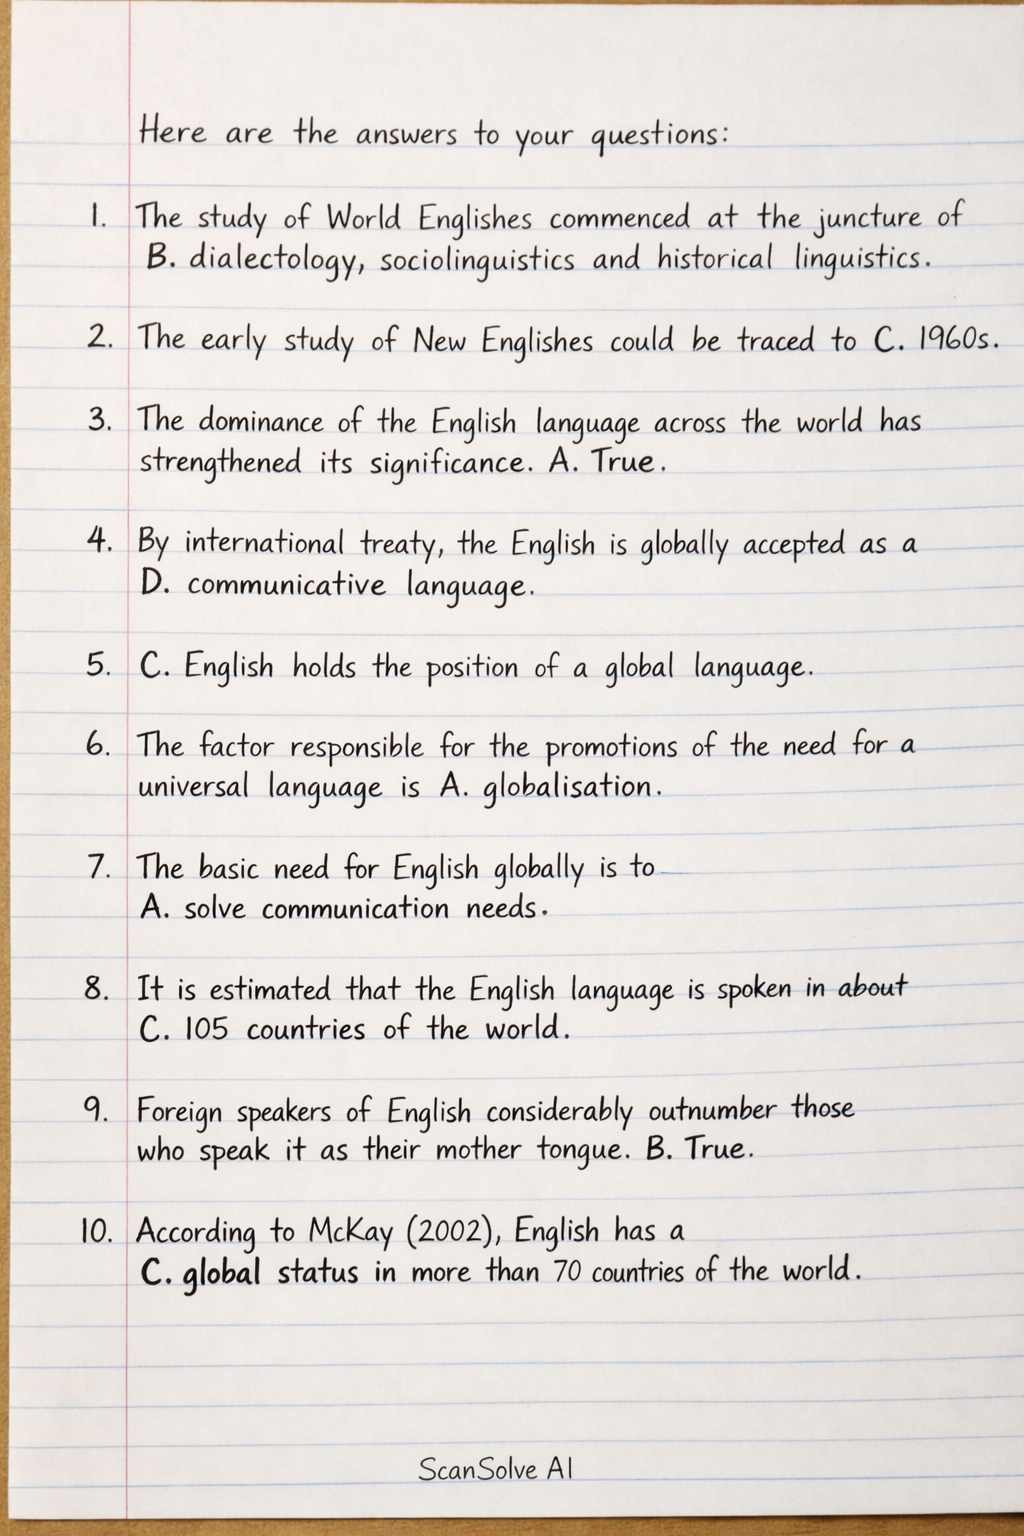 Here are the answers to your questions:
1. The study of World Englishes commenced at the juncture of
B. dialectology, sociolinguistics and historical linguistics.
2. The early study of New Englishes could be traced to C. 1960s.
3. The dominance of the English language across the world has
strengthened its significance. A. True.
4. By international treaty, the English is globally accepted as a
D. communicative language.
5. C. English holds the position of a global language.
6. The factor responsible for the promotions of the need for a
universal language is A. globalisation.
7. The basic need for English globally is to
A. solve communication needs.
8. It is estimated that the English language is spoken in about
C. 105 countries of the world.
9. Foreign speakers of English considerably outnumber those
who speak it as their mother tongue. B. True.
10. According to McKay (2002), English has a
C. global status in more than 70 countries of the world.
ScanSolve AI